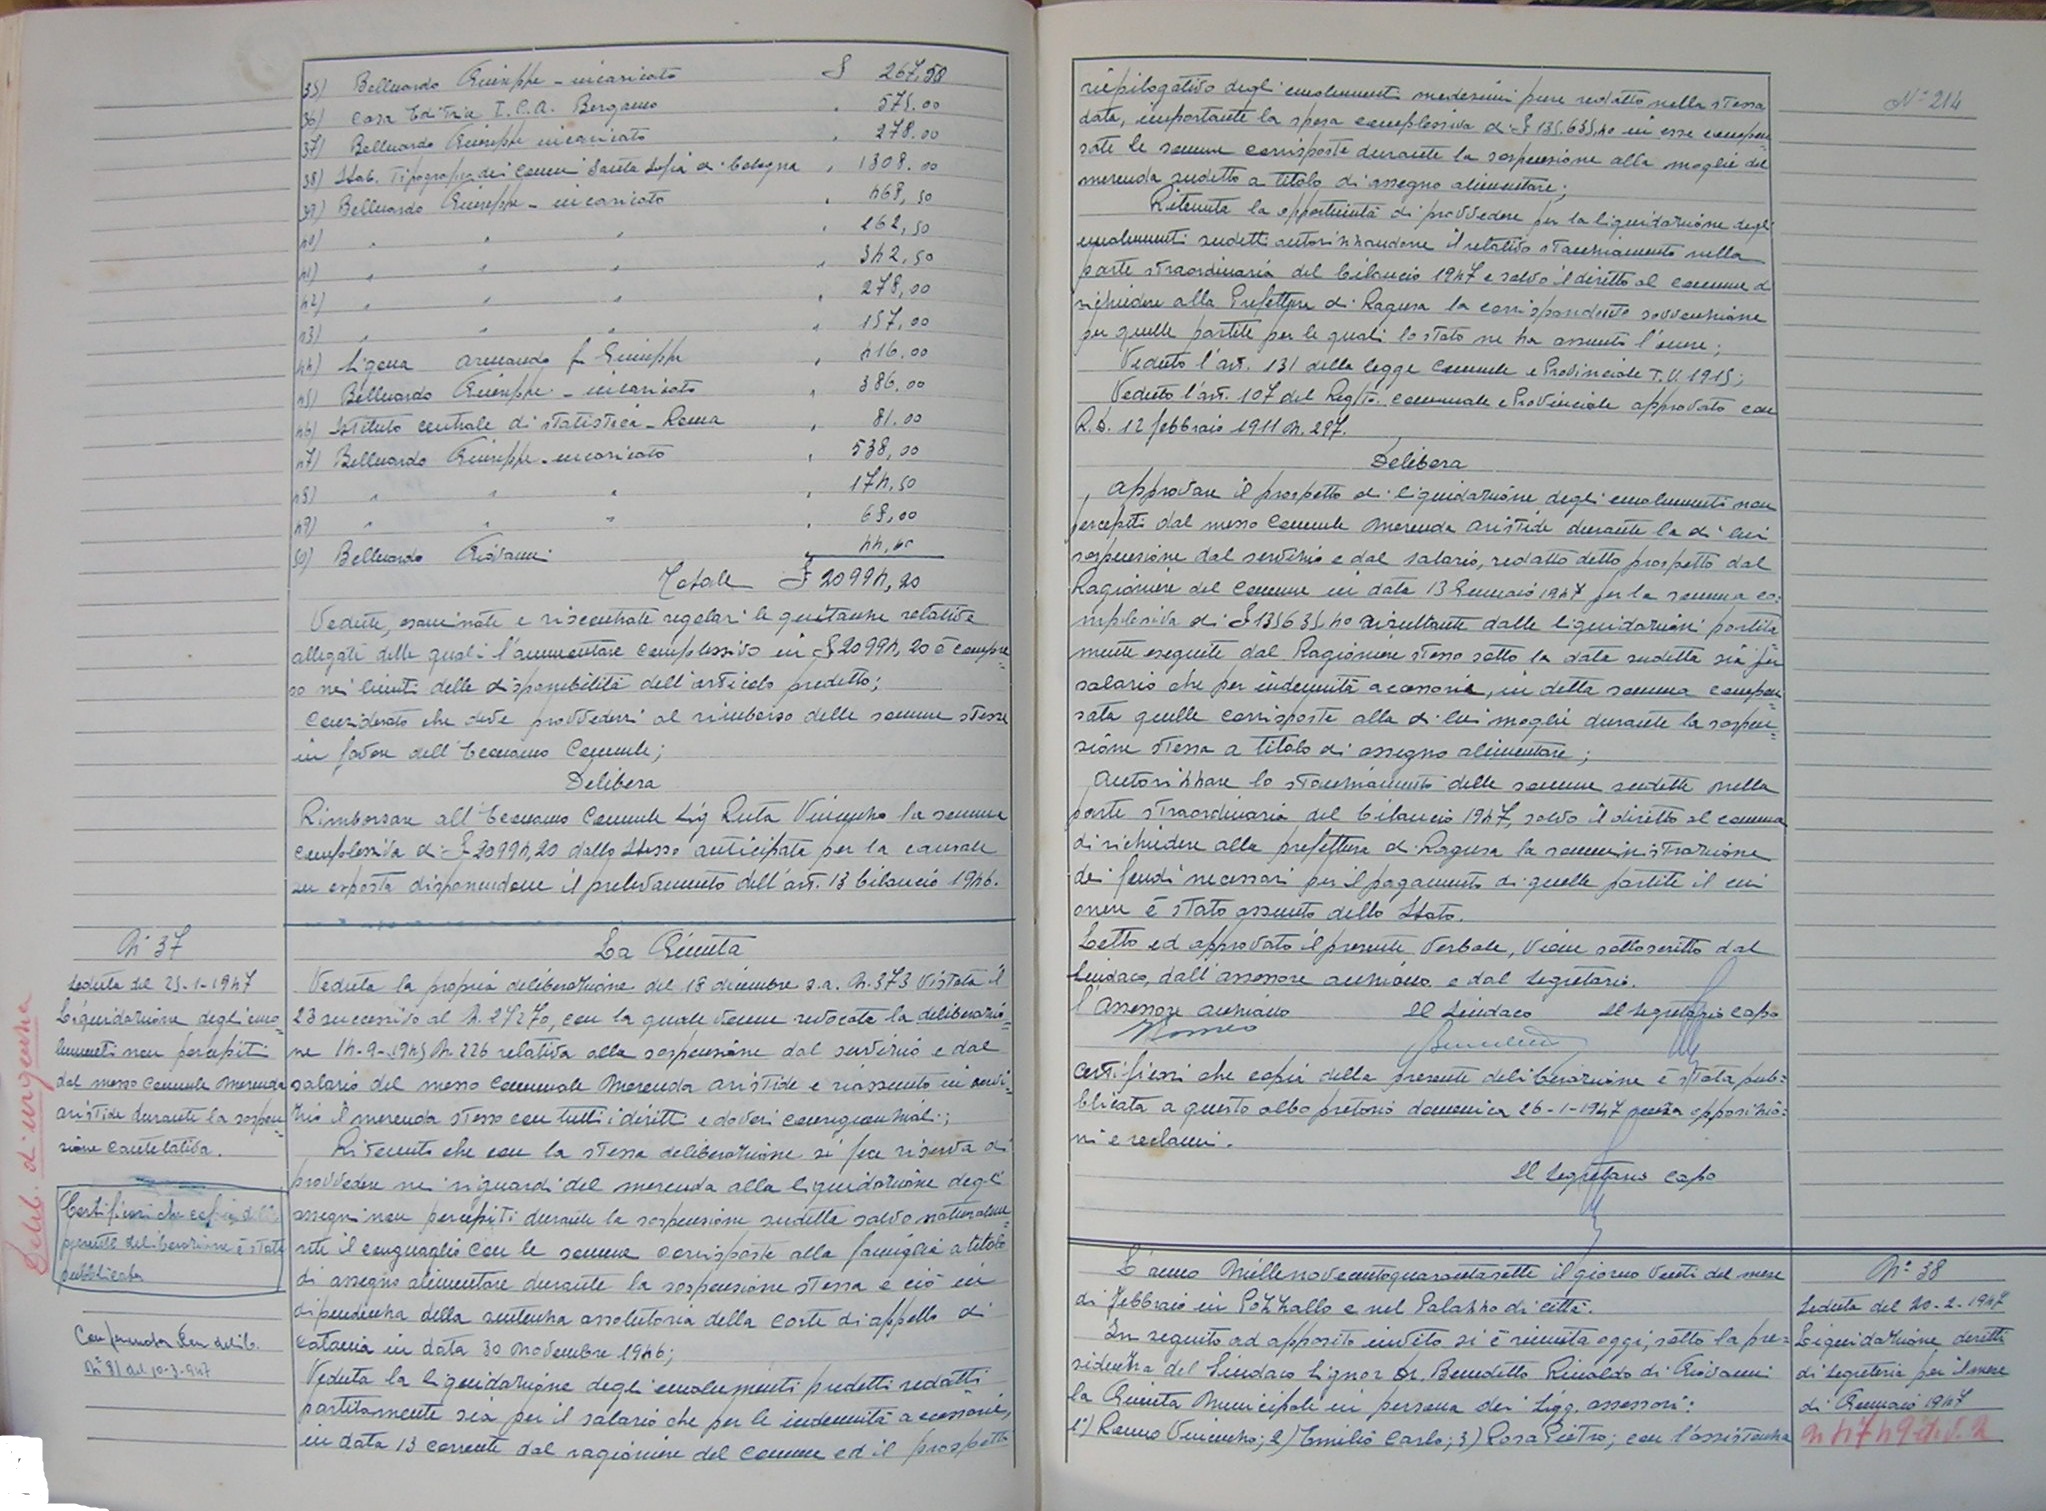 35) Belluardo Giuseppe - incaricato £ 267,50
36) Casa Editrice I.C.A. Bergamo " 575.00
37) Belluardo Giuseppe incaricato " 278.00
38) Stab. Tipografico dei Comuni Santa Sofia di Bologna " 1308.00
39) Belluardo Giuseppe - incaricato " 468,50
40) " " " " 162,50
41) " " " " 342,50
42) " " " " 278,00
43) " " " " 157,00
44) Armando fu Giuseppe " 416.00
45) Belluardo Giuseppe - incaricato " 386,00
46) Istituto centrale di statistica - Roma " 81.00
47) Belluardo Giuseppe - incaricato " 538,00
48) " " " " 174,50
49) " " " " 68,00
50) Belluardo Giovanni "
Totale £ 20994,20
Vedute, esaminate e riscontrate regolari le quietanze relative
allegate delle quali l'ammontare complessivo in £ 20994,20 è compre=
so nei limiti delle disponibilità dell'articolo predetto;
Considerato che deve provvedersi al rimborso delle somme stesse
in favore dell'Economo Comunale;
Delibera
Rimborsare all'Economo Comunale Sig Ruta Vincenzo la somma
complessiva di £ 20994,20 dallo stesso anticipata per la causale
su esposta disponendone il prelevamento dell'art. 13 bilancio 1946.
N° 37
Seduta del 25-1-1947
Liquidazione degli emo=
lumenti non percepiti
dal messo Comunale Merenda
Aristide durante la sospen=
sione cautelativa.
Delib. d'urgenza
Certificasi che copia della
presente deliberazione è stata
pubblicata
Con delib.
N° 81 del 10-3-947
La Giunta
Veduta la propria deliberazione del 18 dicembre s.a. N. 373 vistata il
23 successivo al N. 27270, con la quale venne revocata la deliberazio=
ne 14-9-1945 N. 226 relativa alla sospensione dal servizio e dal
salario del messo Comunale Merenda Aristide e riassunto in servi=
zio il Merenda stesso con tutti i diritti e doveri consequenziali;
Ritenuto che con la stessa deliberazione si fece riserva di
provvedere nei riguardi del Merenda alla liquidazione degli
assegni non percepiti durante la sospensione sudetta salvo naturalme=
nte il conguaglio con le somme corrisposte alla famiglia a titolo
di assegno alimentare durante la sospensione stessa e ciò in
dipendenza della sentenza assolutoria della Corte di appello di
Catania in data 30 Novembre 1946;
Veduta la liquidazione degli emolumenti predetti redatti
partitamente sia per il salario che per le indennità accessorie,
in data 13 corrente dal ragioniere del comune ed il prospetto
N° 214
riepilogativo degli emolumenti medesimi pure redatto nella stessa
data, importante la spesa complessiva di £ 135.635,40 in esse compen=
sate le somme corrisposte durante la sospensione alla moglie del
Merenda sudetto a titolo di assegno alimentare;
Ritenuta la opportunità di provvedere per la liquidazione degli
emolumenti sudetti autorizzandone il relativo stanziamento nella
parte straordinaria del bilancio 1947 e salvo il diritto al comune di
richiedere alla Prefettura di Ragusa la corrispondente sovvenzione
per quelle partite per le quali lo stato ne ha assunto l'onere;
Veduto l'art. 131 della legge Comunale e Provinciale T.U. 1915;
Veduto l'art. 107 del Reg/to. comunale e Provinciale approvato con
R.D. 12 febbraio 1911 N. 297.
Delibera
Approvare il prospetto di liquidazione degli emolumenti non
percepiti dal messo Comunale Merenda Aristide durante la di lui
sospensione dal servizio e dal salario, redatto detto prospetto dal
Ragioniere del Comune in data 13 Gennaio 1947 per la somma co=
mplessiva di £ 135635,40 risultante dalle liquidazioni partita
mente eseguite dal Ragioniere stesso sotto la data sudetta sia per
salario che per indennità accessorie, in detta somma compen=
sata quelle corrisposte alla di lui moglie durante la sospen=
sione stessa a titolo di assegno alimentare;
Autorizzare lo stanziamento delle somme sudette nella
parte straordinaria del bilancio 1947, salvo il diritto al comune
di richiedere alla prefettura di Ragusa la somministrazione
dei fondi necessari per il pagamento di quelle partite il cui
onere è stato assunto dallo Stato.
Letto ed approvato il presente verbale, viene sottoscritto dal
Sindaco, dall'assessore anziano e dal Segretario.
L'Assessore anziano Il Sindaco Il Segretario Capo
Certificasi che copia della presente deliberazione è stata pub=
blicata a questo albo pretorio domenica 26-1-1947 senza opposizio=
ni e reclami.
Il Segretario Capo
L'anno Millenovecentoquarantasette il giorno venti del mese
di Febbraio in Pozzallo e nel Palazzo di città.
In seguito ad apposito invito si è riunita oggi, sotto la pre=
sidenza del Sindaco Signor Dr. Benedetto Rinaldo di Giovanni
la Giunta Municipale in persona dei Sigg. assessori:
1°) Romeo Vincenzo; 2) Emilio Carlo; 3) Rosa Pietro; con l'assistenza
N° 38
Seduta del 20-2-1947
Liquidazione diritti
di segreteria per il mese
di Gennaio 1947